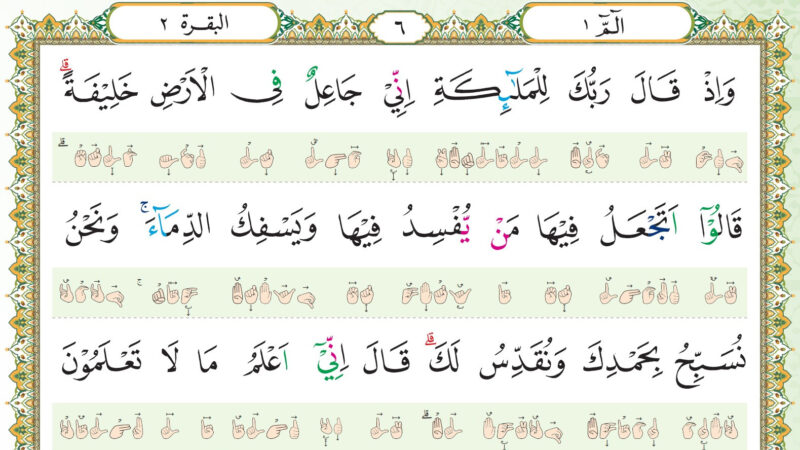 الٓمّٓ ١ ٦ البقرة ٢
وَاِذْ قَالَ رَبُّكَ لِلْمَلٰٓئِكَةِ اِنِّيْ جَاعِلٌ فِى الْاَرْضِ خَلِيْفَةًۗ
قَالُوْٓا اَتَجْعَلُ فِيْهَا مَنْ يُّفْسِدُ فِيْهَا وَيَسْفِكُ الدِّمَاۤءَۚ وَنَحْنُ
نُسَبِّحُ بِحَمْدِكَ وَنُقَدِّسُ لَكَۗ قَالَ اِنِّيْٓ اَعْلَمُ مَا لَا تَعْلَمُوْنَ